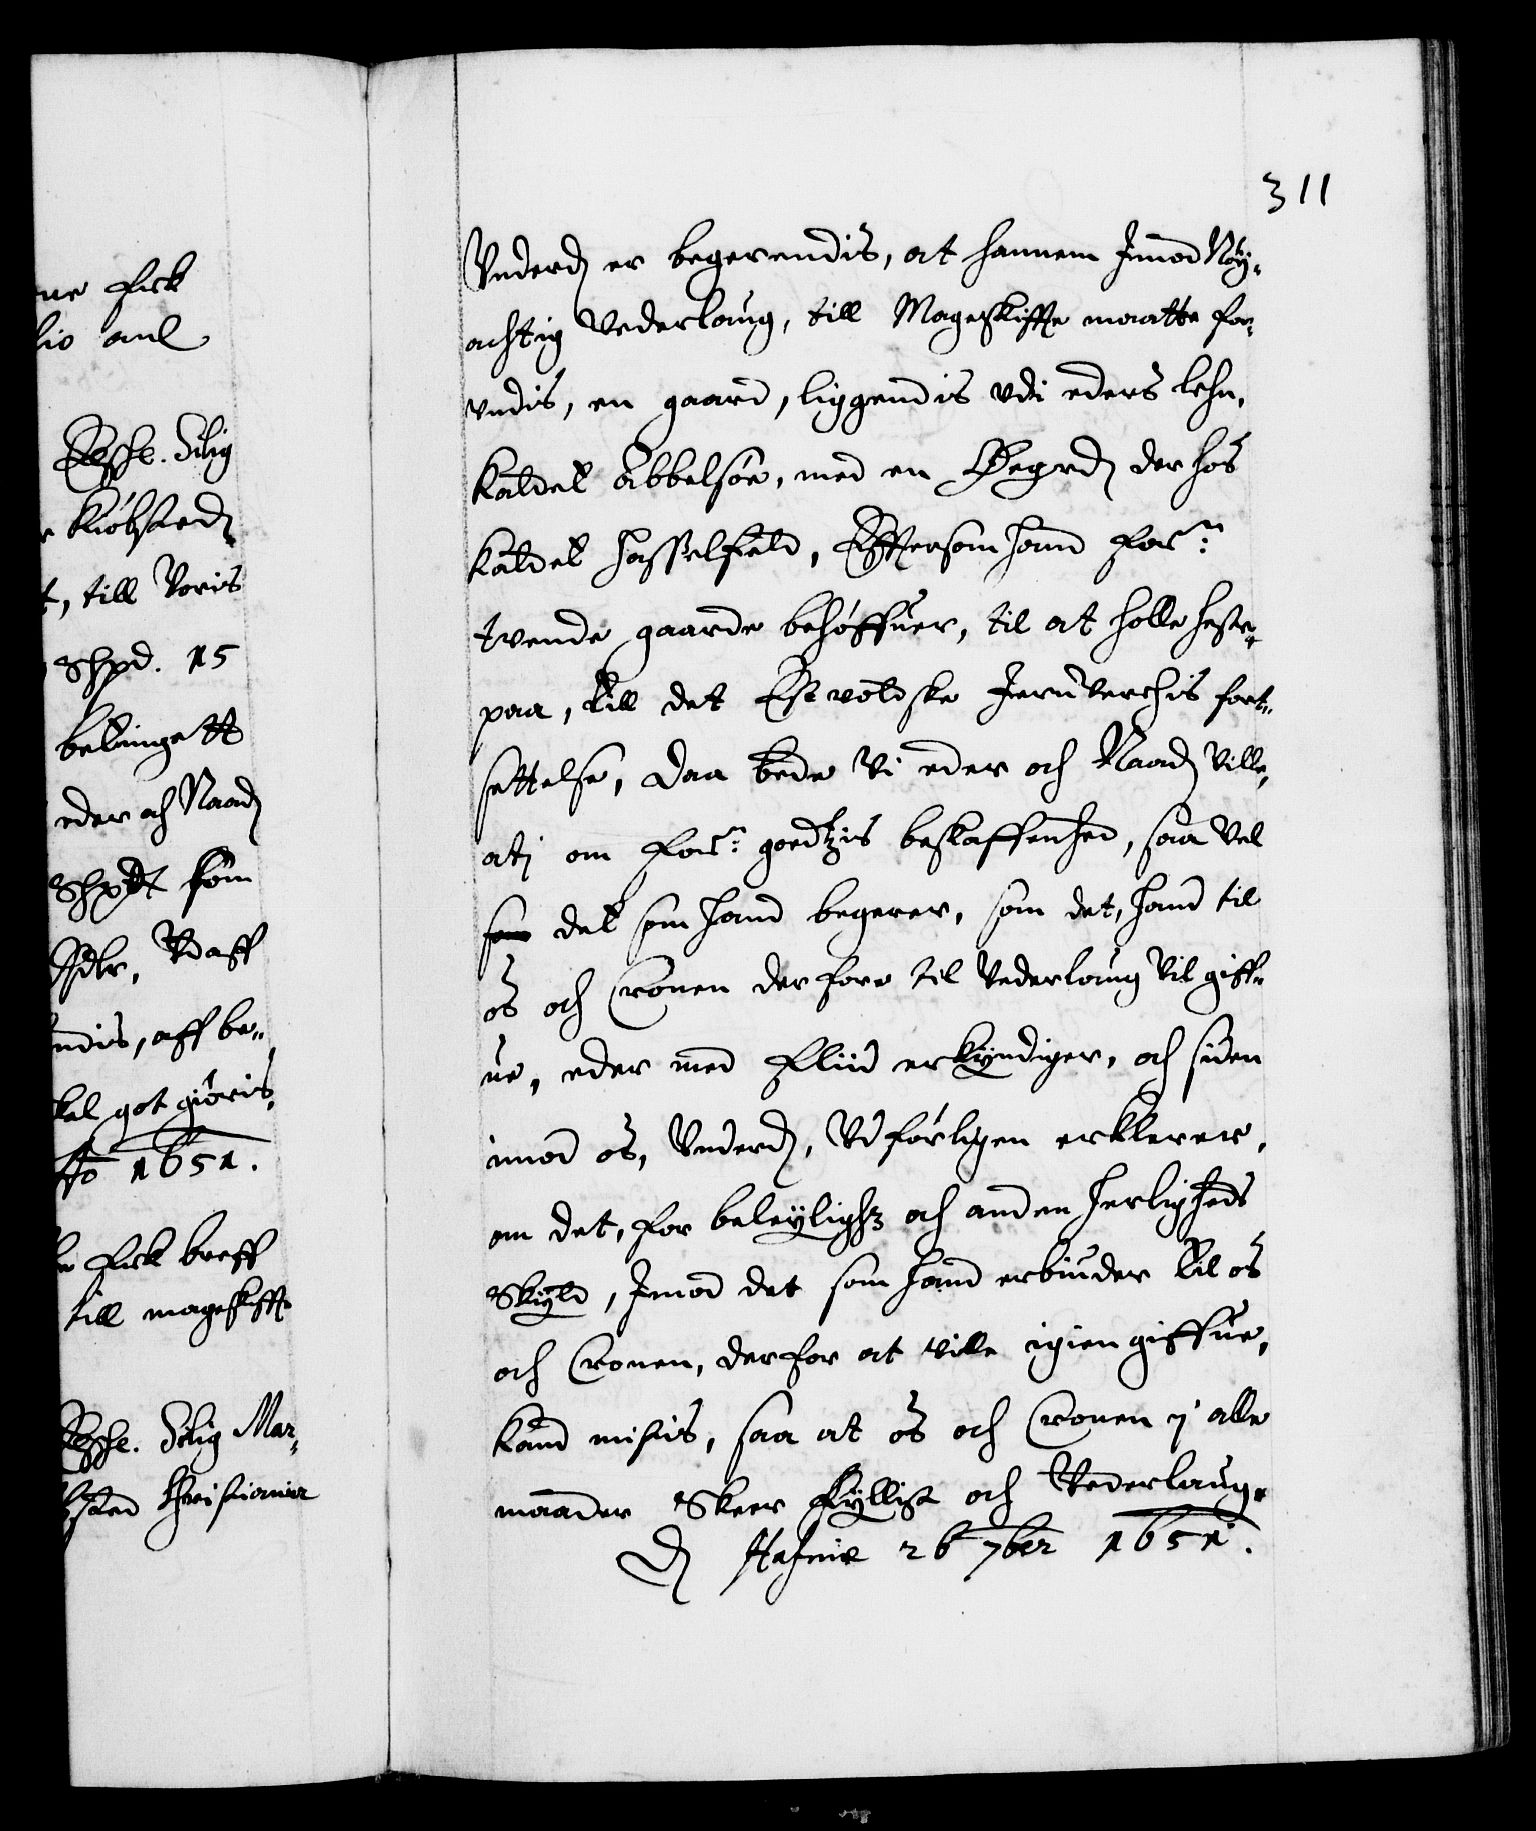 311
Vnderd: er begerendis, at hannem Jmod Nøy-
achtig Vederlaug, till Mageskiffte maatte for-
undis, en gaard, liggendis udi eders lehn,
kaldet Abbelsøe, med en Ødegrd: der hos
kaldet Hasselfeld, Efftersom hand forne:
tvende gaarde behøffuer, til at holle heste
paa, till det Eswoldske Jernverchis fort-
settelse, Daa bede Vi eder och Naad: Ville,
atj om forne: goedtzis beskaffenhed, saa Vel
som det som hand begerer, som det, hand til
os och Cronen derfore til Vederlaug Vil giff-
ue, eder med Fliid erkyndiger, och siden
imod os, Vnderd:, Vdførligen erklerer,
om det, for beleyligh: och anden herligheds
Skyld, Jmod det som hand erbiuder til os
och Cronen, derfor at ville igien giffue,
kand mistis, saa at os och Cronen i alle
maader Skeer Fyllist och Vederlaug.
D: Hafniæ 26 7ber 1651.
ne Fick
lio anl
Befhl. Silig
Kiøbsted
t, till Voris
Shpd. 15
betinget
eder och Naad:
Shpdt som
Rdlr, Vdaff
ndis, aff be-
kal got giøris,
1651.
Fick breff
till mageskiffte
Befhl. Silig Mar-
sted Christiania